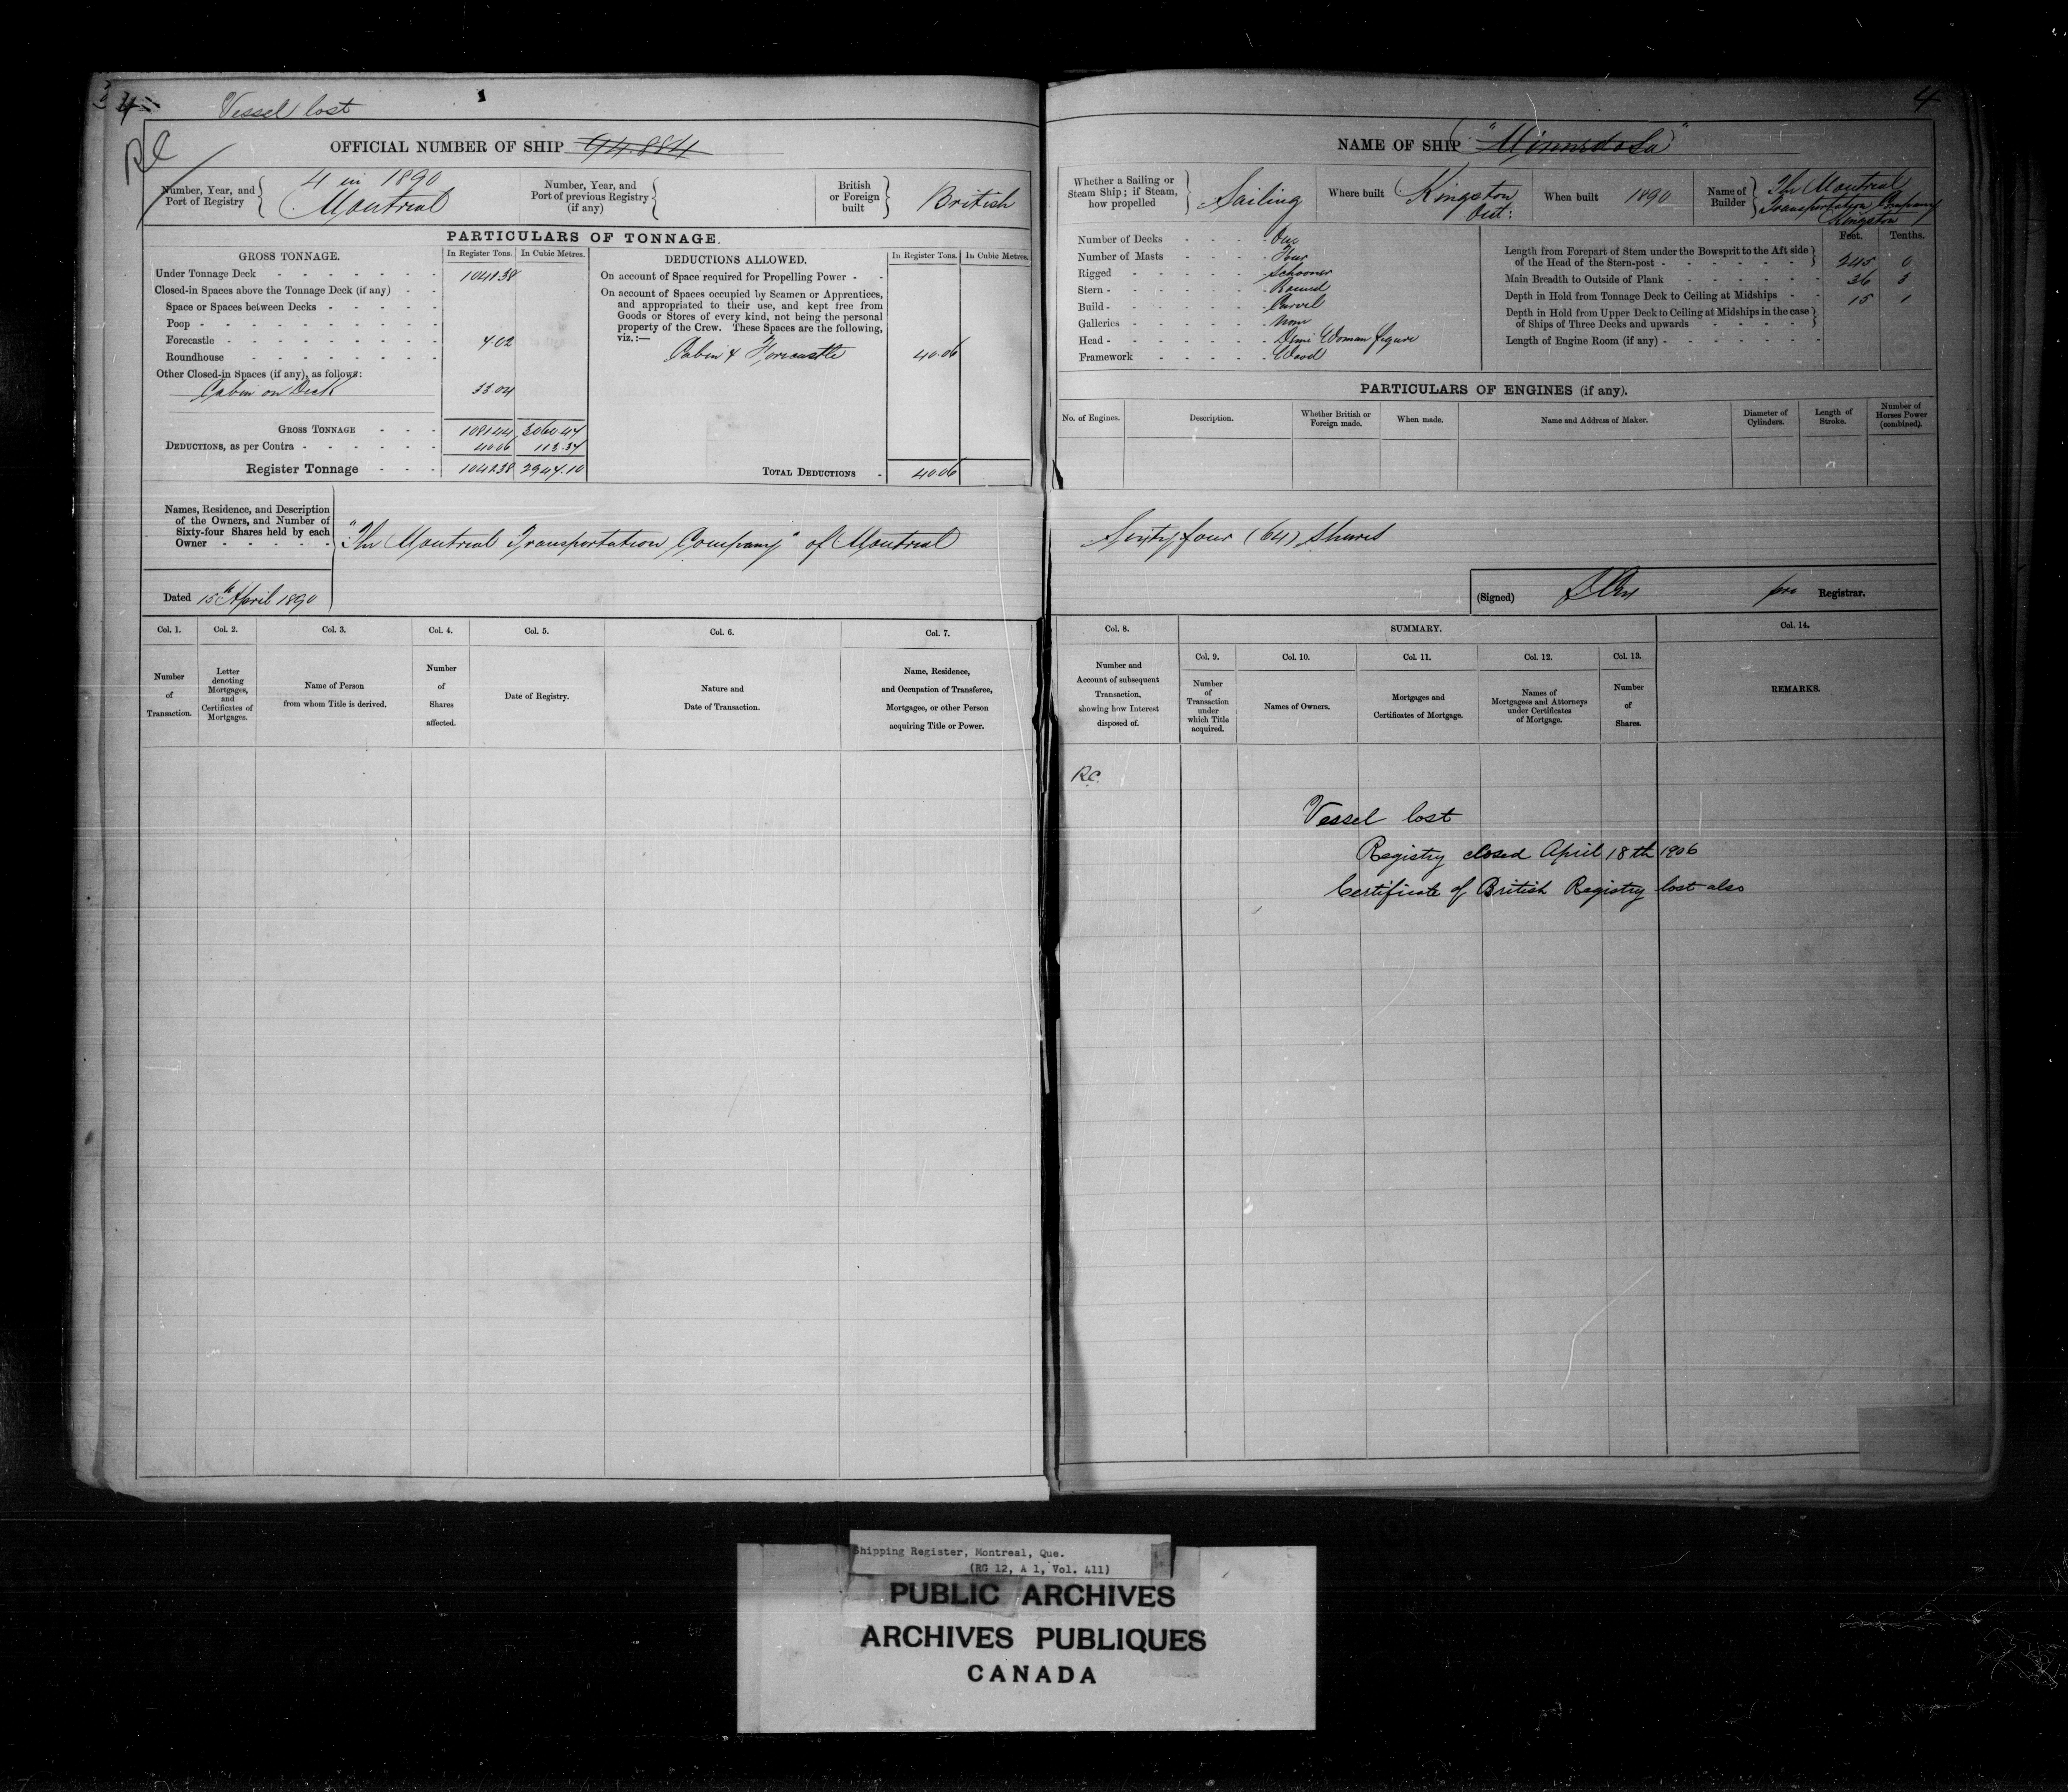 4
Vessel lost
RC
OFFICIAL NUMBER OF SHIP 94.884
Number, Year, and Port of Registry
4 in 1890
Montreal
Number, Year, and Port of previous Registry (if any)
British or Foreign built
British
PARTICULARS OF TONNAGE.
GROSS TONNAGE.
In Register Tons.
In Cubic Metres.
Under Tonnage Deck
Closed-in Spaces above the Tonnage Deck (if any)
Space or Spaces between Decks
Poop
Forecastle 4.02
Roundhouse
Other Closed-in Spaces (if any), as follows:
Cabin on Deck 33.04
GROSS TONNAGE
DEDUCTIONS, as per Contra 40.06 113.37
Register Tonnage 2947.10
DEDUCTIONS ALLOWED.
In Register Tons.
In Cubic Metres.
On account of Space required for Propelling Power
On account of Spaces occupied by Seamen or Apprentices,
and appropriated to their use, and kept free from
Goods or Stores of every kind, not being the personal
property of the Crew. These Spaces are the following,
viz.:—
Cabin & Forecastle 40.06
TOTAL DEDUCTIONS 40.06
Names, Residence, and Description
of the Owners, and Number of
Sixty-four Shares held by each
Owner
"The Montreal Transportation Company" of Montreal
Dated 15th April 1890
Col. 1.
Number of Transaction.
Col. 2.
Letter denoting Mortgages, and Certificates of Mortgages.
Col. 3.
Name of Person from whom Title is derived.
Col. 4.
Number of Shares affected.
Col. 5.
Date of Registry.
Col. 6.
Nature and Date of Transaction.
Col. 7.
Name, Residence, and Occupation of Transferee, Mortgagee, or other Person acquiring Title or Power.
4
NAME OF SHIP "Minnedosa"
Whether a Sailing or Steam Ship; if Steam, how propelled
Sailing
Where built
Kingston
Ont:
When built
1890
Name of Builder
The Montreal
Transportation Company
Kingston
Number of Decks One
Number of Masts Four
Rigged Schooner
Stern Round
Build Carvel
Galleries None
Head Demi Woman figure
Framework Wood
Feet. Tenths.
Length from Forepart of Stem under the Bowsprit to the Aft side
of the Head of the Stern-post 245 0
Main Breadth to Outside of Plank 36 3
Depth in Hold from Tonnage Deck to Ceiling at Midships 15 1
Depth in Hold from Upper Deck to Ceiling at Midships in the case
of Ships of Three Decks and upwards
Length of Engine Room (if any)
PARTICULARS OF ENGINES (if any).
No. of Engines.
Description.
Whether British or Foreign made.
When made.
Name and Address of Maker.
Diameter of Cylinders.
Length of Stroke.
Number of Horses Power (combined).
Sixty four (64) Shares
(Signed)
pro Registrar.
Col. 8.
Number and Account of subsequent Transaction, showing how Interest disposed of.
SUMMARY.
Col. 9.
Number of Transaction under which Title acquired.
Col. 10.
Names of Owners.
Col. 11.
Mortgages and Certificates of Mortgage.
Col. 12.
Names of Mortgagees and Attorneys under Certificates of Mortgage.
Col. 13.
Number of Shares.
Col. 14.
REMARKS.
R.C.
Vessel lost
Registry closed April 18th 1906
Certificate of British Registry lost also
Shipping Register, Montreal, Que.
(RG 12, A 1, Vol. 411)
PUBLIC ARCHIVES
ARCHIVES PUBLIQUES
CANADA